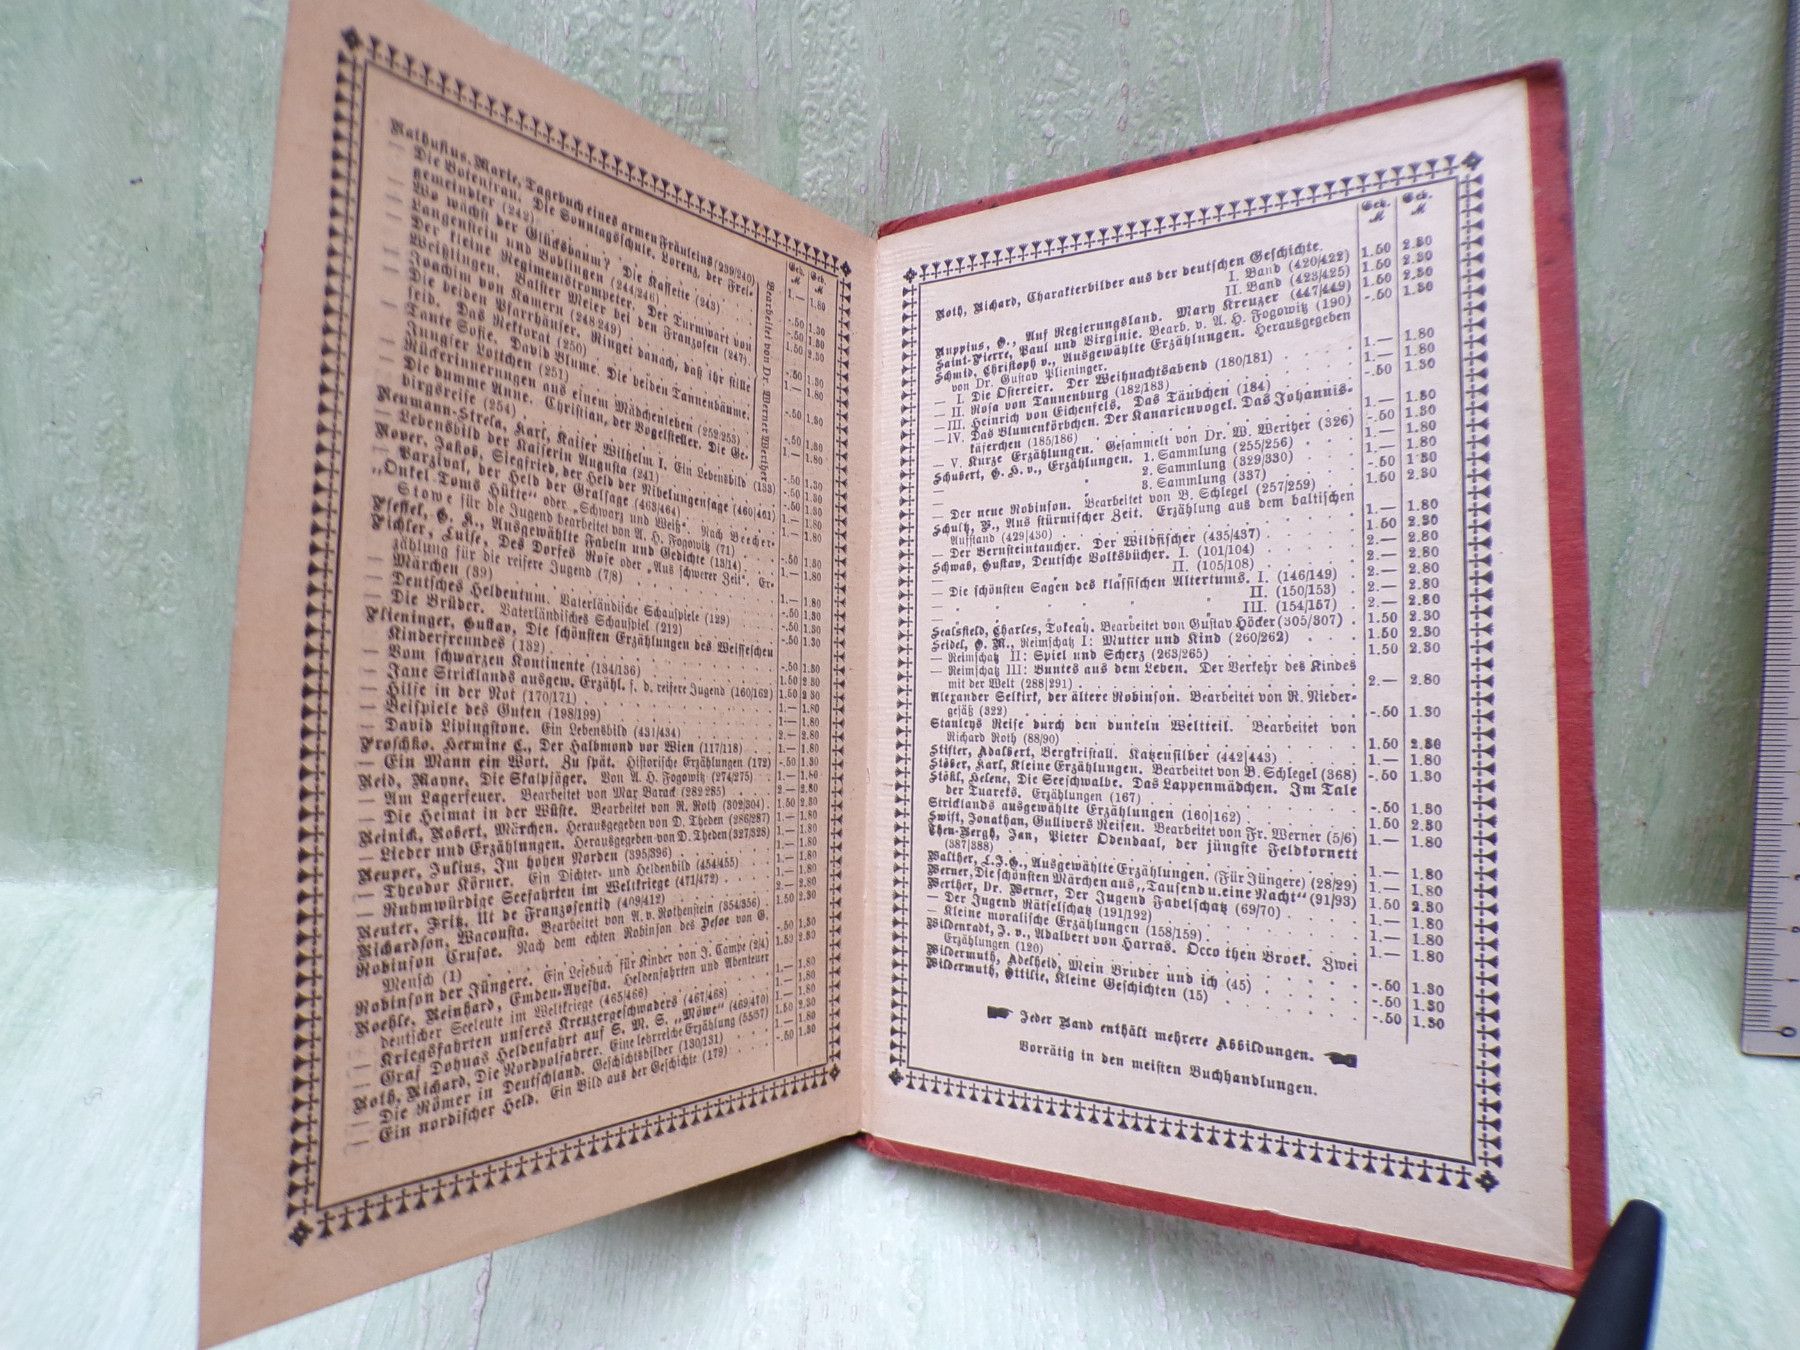 Nathusius, Marie, Tagebuch eines armen Fräuleins (239/240)
— Die Botenfrau. Die Sonntagsschule. Lorenz, der Frei-
gemeindler (242)
— Wo wächst der Glücksbaum? Die Kassette (243)
— Langenstein und Boblingen (244/246)
— Der kleine Regimentstrompeter. Der Turmwart von
Weitzlingen. Balster Meier bei den Franzosen (247)
— Joachim von Kamern (248/249)
— Die beiden Pfarrhäuser. Ringet danach, daß ihr stille
seid. Das Rektorat (250)
— Tante Sofie. David Blume. Die beiden Tannenbäume.
Jungfer Lottchen (251)
— Rückerinnerungen aus einem Mädchenleben (252/253)
— Die dumme Anne. Christian, der Vogelsteller. Die Ge-
birgsreise (254)
Bearbeitet von Dr. Werner Werther
Neumann-Strela, Karl, Kaiser Wilhelm I. Ein Lebensbild (133)
— Lebensbild der Kaiserin Augusta (241)
Nover, Jakob, Siegfried, der Held der Nibelungensage (460/461)
— Parzival, der Held der Gralsage (463/464)
„Onkel Toms Hütte“ oder „Schwarz und Weiß“. Nach Beecher-
Stowe für die Jugend bearbeitet von A. H. Fogowitz (71)
Pfeffel, G. K., Ausgewählte Fabeln und Gedichte (13/14)
Pichler, Luise, Des Dorfes Rose oder „Aus schwerer Zeit“. Er-
zählung für die reifere Jugend (7/8)
— Märchen (39)
— Deutsches Heldentum. Vaterländische Schauspiele (129)
— Die Brüder. Vaterländisches Schauspiel (212)
Plieninger, Gustav, Die schönsten Erzählungen des Weisseschen
Kinderfreundes (132)
— Vom schwarzen Kontinente (134/136)
— Jane Stricklands ausgew. Erzähl. f. d. reifere Jugend (160/162)
— Hilfe in der Not (170/171)
— Beispiele des Guten (198/199)
— David Livingstone. Ein Lebensbild (431/434)
Proschko, Hermine C., Der Halbmond vor Wien (117/118)
— Ein Mann ein Wort. Zu spät. Historische Erzählungen (172)
Reid, Mayne, Die Skalpjäger. Von A. H. Fogowitz (274/275)
— Am Lagerfeuer. Bearbeitet von Max Barack (282/285)
— Die Heimat in der Wüste. Bearbeitet von R. Roth (302/304)
Reinick, Robert, Märchen. Herausgegeben von D. Theden (286/287)
— Lieder und Erzählungen. Herausgegeben von D. Theden (327/328)
Reuper, Julius, Im hohen Norden (395/396)
— Theodor Körner. Ein Dichter- und Heldenbild (454/455)
— Ruhmwürdige Seefahrten im Weltkriege (471/472)
Reuter, Fritz, Ut de Franzosentid (409/412)
Richardson, Wacousta. Bearbeitet von A. v. Rothenstein (354/356)
Robinson Crusoe. Nach dem echten Robinson des Defoe von G.
Mensch (1)
Robinson der Jüngere. Ein Lesebuch für Kinder von J. Campe (2/4)
Roehle, Reinhard, Emden-Ayesha. Heldenfahrten und Abenteuer
deutscher Seeleute im Weltkriege (465/466)
— Kriegsfahrten unseres Kreuzergeschwaders (467/468)
— Graf Dohnas Heldenfahrt auf S. M. S. „Möwe“ (469/470)
Roth, Richard, Die Nordpolfahrer. Eine lehrreiche Erzählung (55/57)
— Die Römer in Deutschland. Geschichtsbilder (130/131)
— Ein nordischer Held. Ein Bild aus der Geschichte (179)
Geh. Geb.
M M
Roth, Richard, Charakterbilder aus der deutschen Geschichte.
I. Band (420/422) 1.50 2.30
II. Band (423/425) 1.50 2.30
Ruppius, O., Auf Regierungsland. Mary Kreuzer (447/449) 1.50 2.30
Saint-Pierre, Paul und Virginie. Bearb. v. A. H. Fogowitz (190) -.50 1.30
Schmid, Christoph v., Ausgewählte Erzählungen. Herausgegeben
von Dr. Gustav Plieninger.
— I. Die Ostereier. Der Weihnachtsabend (180/181) 1.— 1.80
— II. Rosa von Tannenburg (182/183) 1.— 1.80
— III. Heinrich von Eichenfels. Das Täubchen (184) -.50 1.30
— IV. Das Blumenkörbchen. Der Kanarienvogel. Das Johannis-
käferchen (185/186) 1.— 1.80
— V. Kurze Erzählungen. Gesammelt von Dr. W. Werther (326) -.50 1.30
Schubert, G. H. v., Erzählungen. 1. Sammlung (255/256) 1.— 1.80
— „ 2. Sammlung (329/330) 1.— 1.80
— „ 3. Sammlung (337) -.50 1.30
— Der neue Robinson. Bearbeitet von B. Schlegel (257/259) 1.50 2.30
Schultz, P., Aus stürmischer Zeit. Erzählung aus dem baltischen
Aufstand (429/430) 1.— 1.80
— Der Bernsteintaucher. Der Wildfischer (435/437) 1.50 2.30
Schwab, Gustav, Deutsche Volksbücher. I. (101/104) 2.— 2.80
— „ „ II. (105/108) 2.— 2.80
— Die schönsten Sagen des klassischen Altertums. I. (146/149) 2.— 2.80
— „ „ „ „ „ II. (150/153) 2.— 2.80
— „ „ „ „ „ III. (154/157) 2.— 2.80
Sealsfield, Charles, Tokeah. Bearbeitet von Gustav Höcker (305/307) 1.50 2.30
Seidel, G. M., Reimschatz I: Mutter und Kind (260/262) 1.50 2.30
— Reimschatz II: Spiel und Scherz (263/265) 1.50 2.30
— Reimschatz III: Buntes aus dem Leben. Der Verkehr des Kindes
mit der Welt (288/291) 2.— 2.80
Alexander Selkirk, der ältere Robinson. Bearbeitet von R. Nieder-
gesäß (322) -.50 1.30
Stanleys Reise durch den dunkeln Weltteil. Bearbeitet von
Richard Roth (88/90) 1.50 2.30
Stifter, Adalbert, Bergkristall. Katzensilber (442/443) 1.— 1.80
Stöber, Karl, Kleine Erzählungen. Bearbeitet von B. Schlegel (368) -.50 1.30
Stökl, Helene, Die Seeschwalbe. Das Lappenmädchen. Im Tale
der Tuareks. Erzählungen (167) -.50 1.30
Stricklands ausgewählte Erzählungen (160/162) 1.50 2.30
Swift, Jonathan, Gullivers Reisen. Bearbeitet von Fr. Werner (5/6) 1.— 1.80
Then-Bergh, Jan, Pieter Odendaal, der jüngste Feldkornett
(387/388) 1.— 1.80
Walther, L. J. G., Ausgewählte Erzählungen. (Für Jüngere) (28/29) 1.— 1.80
Werner, Die schönsten Märchen aus „Tausend u. eine Nacht“ (91/93) 1.50 2.30
Werther, Dr. Werner, Der Jugend Fabelschatz (69/70) 1.— 1.80
— Der Jugend Rätselschatz (191/192) 1.— 1.80
— Kleine moralische Erzählungen (158/159) 1.— 1.80
Wildenradt, J. v., Adalbert von Harras. Occo then Broek. Zwei
Erzählungen (120) -.50 1.30
Wildermuth, Adelheid, Mein Bruder und ich (45) -.50 1.30
Wildermuth, Ottilie, Kleine Geschichten (15) -.50 1.30
Jeder Band enthält mehrere Abbildungen.
Vorrätig in den meisten Buchhandlungen.